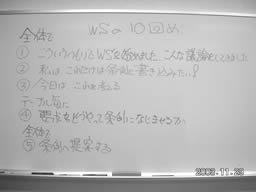 WSの10回め
全体で
① こういうつもりでWSを始めました。こんな議論をしてきました
② 私は これだけは条例に書き込みたい!
③ 今日は これを考える
テーブル毎に
④ 要点をどうやって条例になじませるか
全体で
⑤ 条例へ提案する
2003.11.29